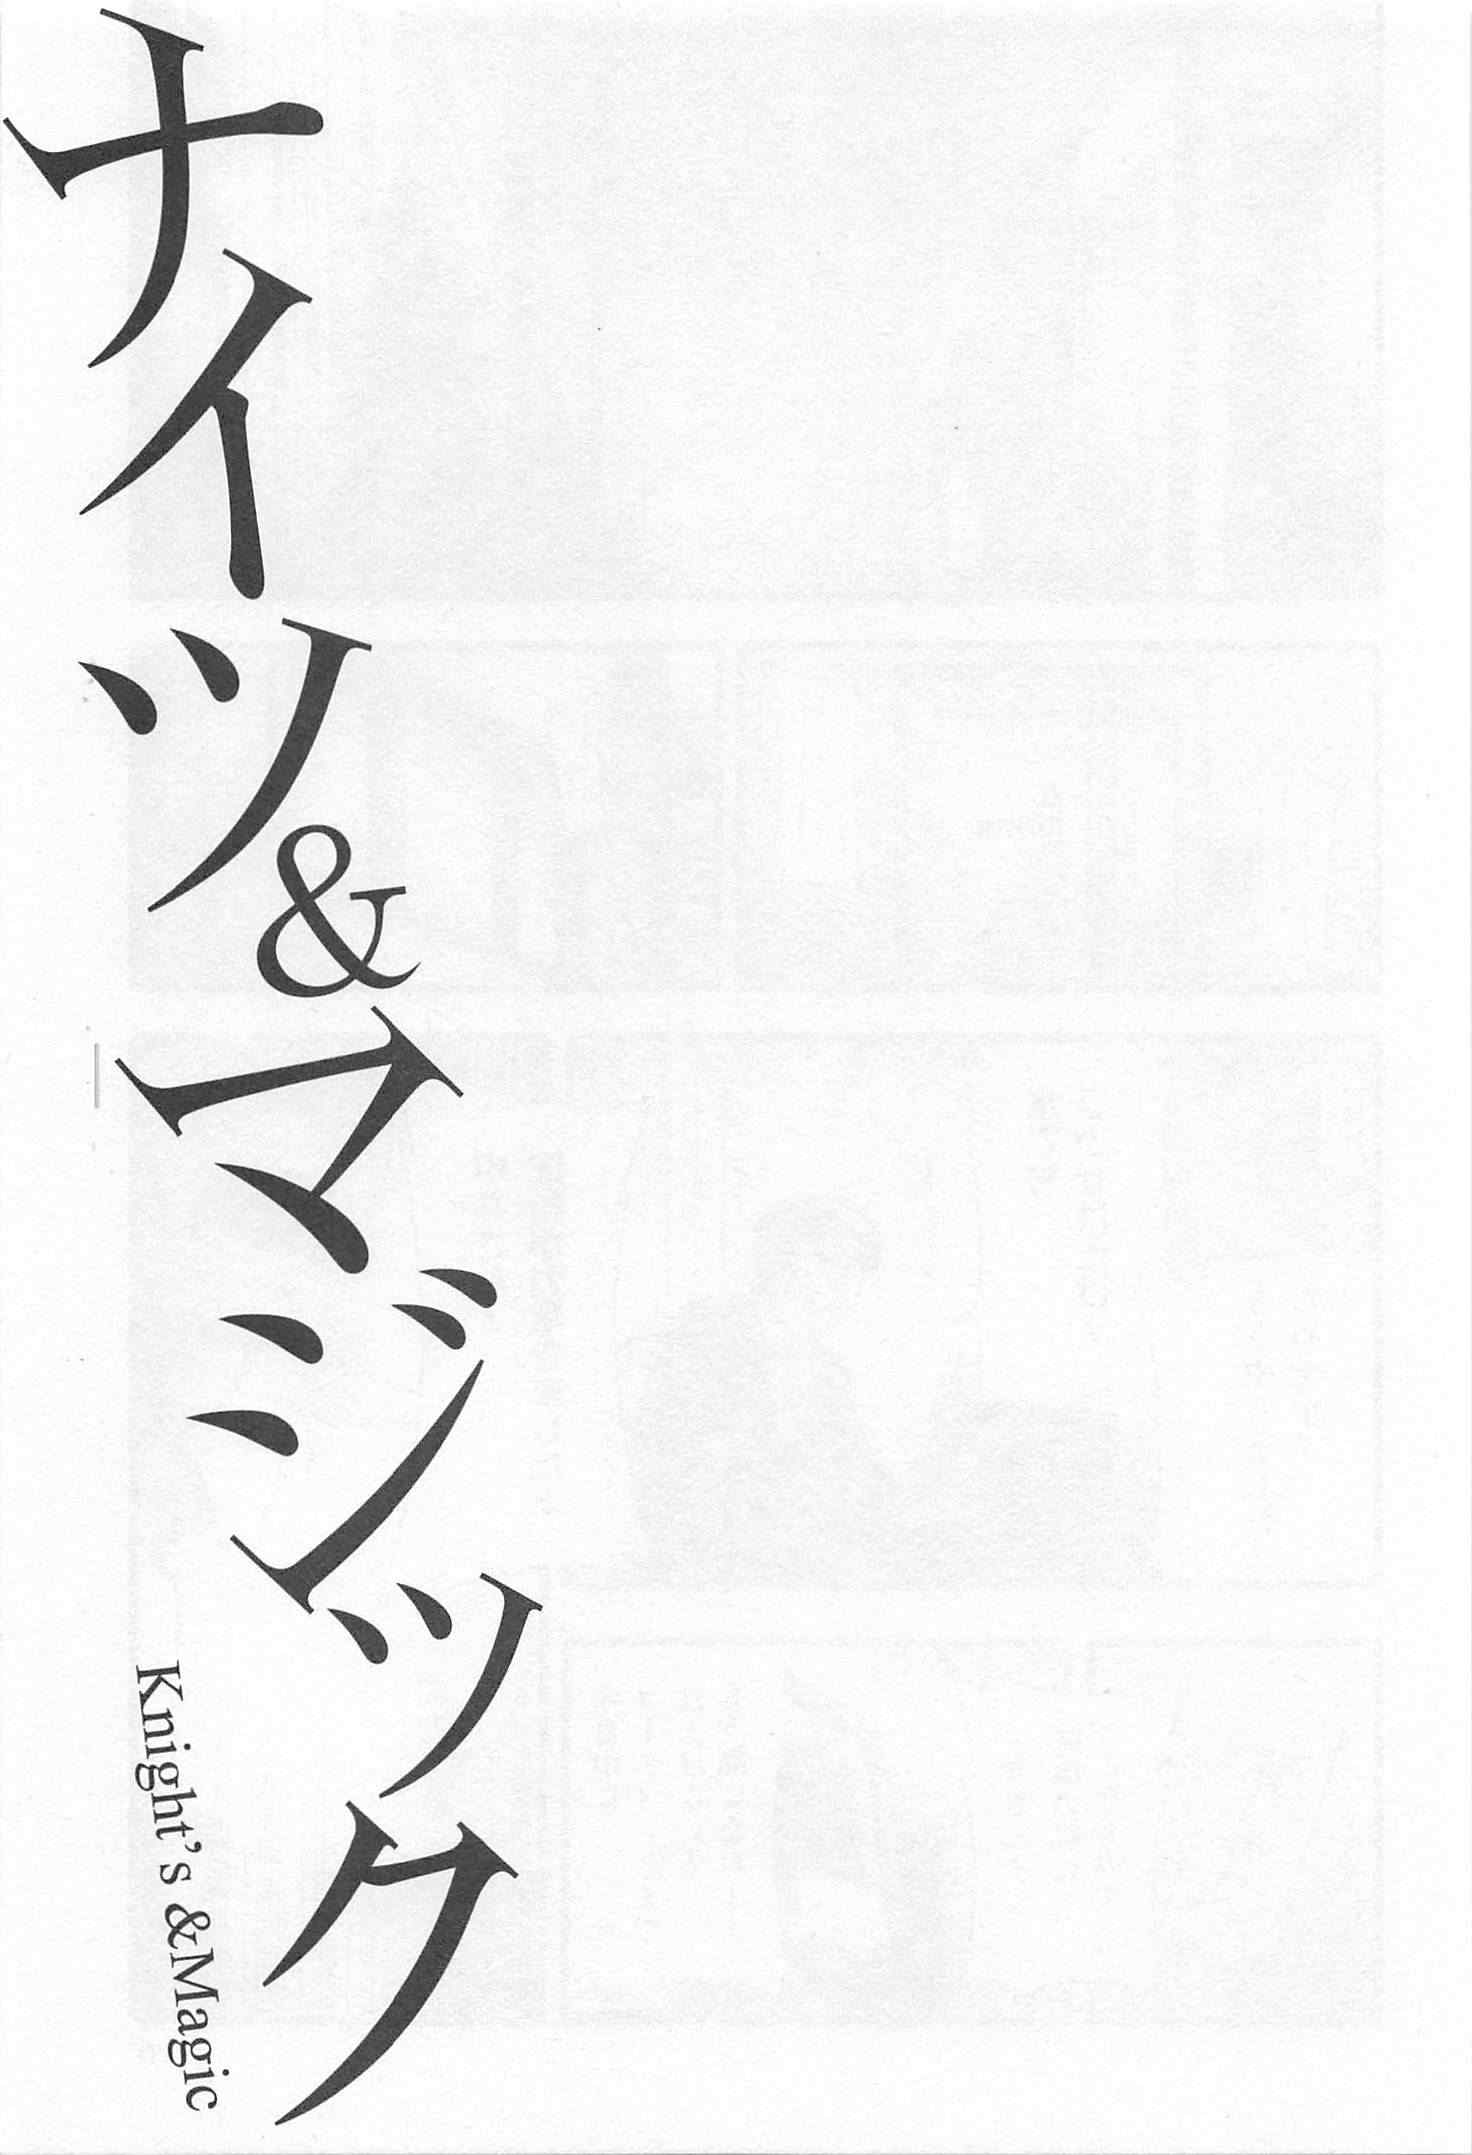 ナイツ&マジック
Knight's &Magic